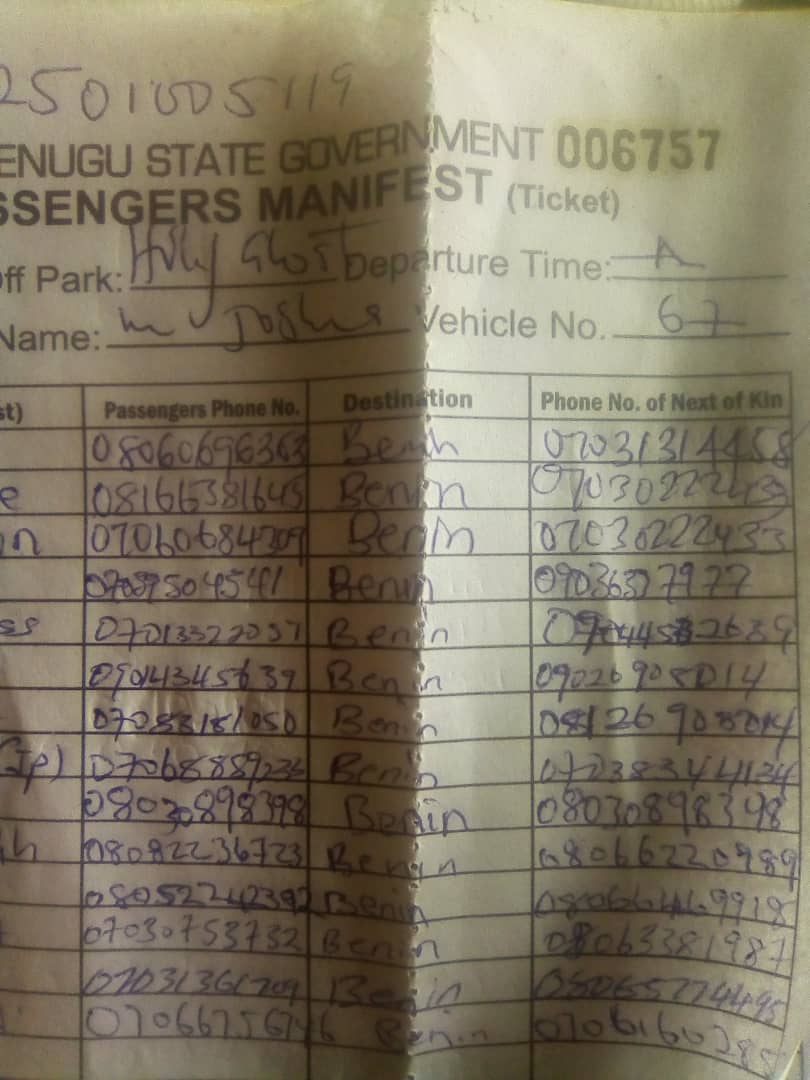 25010005119
ENUGU STATE GOVERNMENT 006757
SSENGERS MANIFEST (Ticket)
ff Park: Holy Ghost Departure Time: A
Name: Mr Joshua Vehicle No. 67
st) Passengers Phone No. Destination Phone No. of Next of Kin
08060696363 Benin 07031314458
e 08166381645 Benin 07030222433
on 07060684709 Benin 07030222433
Benin 09036377977
ss 07013322057 Benin
09014345639 Benin 09026908014
07083181050 Benin 08126908014
(JP) 07068889236 Benin 07038344134
08030898398 Benin 08030898398
ah 08082236723 Benin 08066220989
08052242392 Benin 08066469918
07030753732 Benin 08063381987
07031361709 Benin
07066756746 Benin